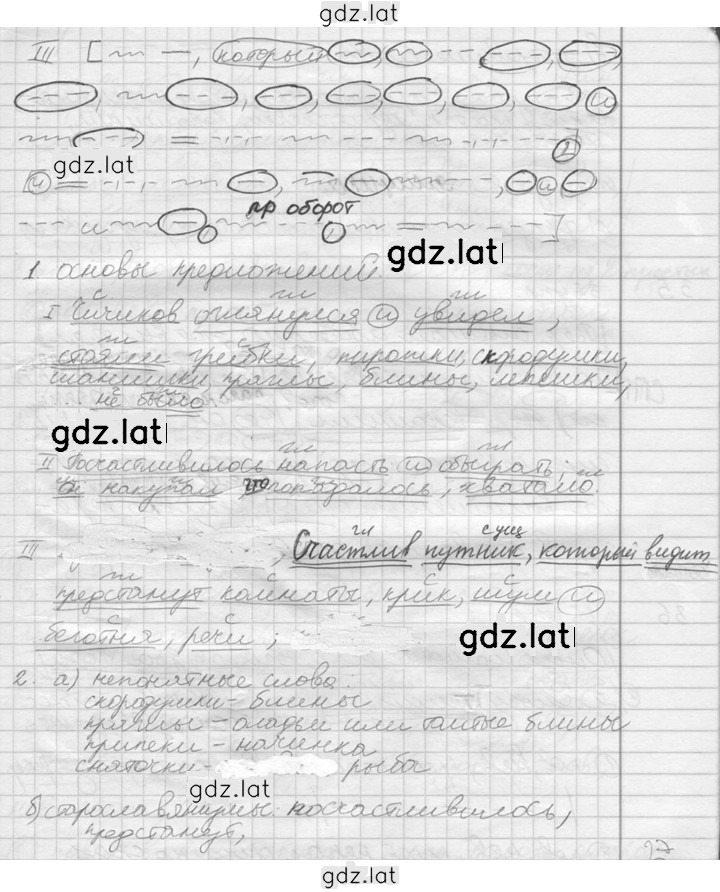 gdz.lat
III [ , который
и
2
и и
gdz.lat
и
пр оборот
1 1
gdz.lat
1 основы предложений.
сущ гл гл
I Чичиков оглянулся и увидел,
гл с
стояли грибки, пирожки, скородумки,
шанишки, пряглы, блины, лепешки,
не было.
gdz.lat
гл гл
II Посчастливилось напасть и обыграть;
он накупал, что попадалось, хватало.
гл сущ
III , Счастлив путник, который видит
гл с с с
предстанут комнаты, крик, шум и
с с
беготня, речи;
gdz.lat
2. а) непонятные слова:
скородумки - блины
пряглы - оладьи или толстые блины
припеки - начинка
сняточки - рыба
gdz.lat
б) старославянизмы: посчастливилось,
предстанут,
gdz.lat